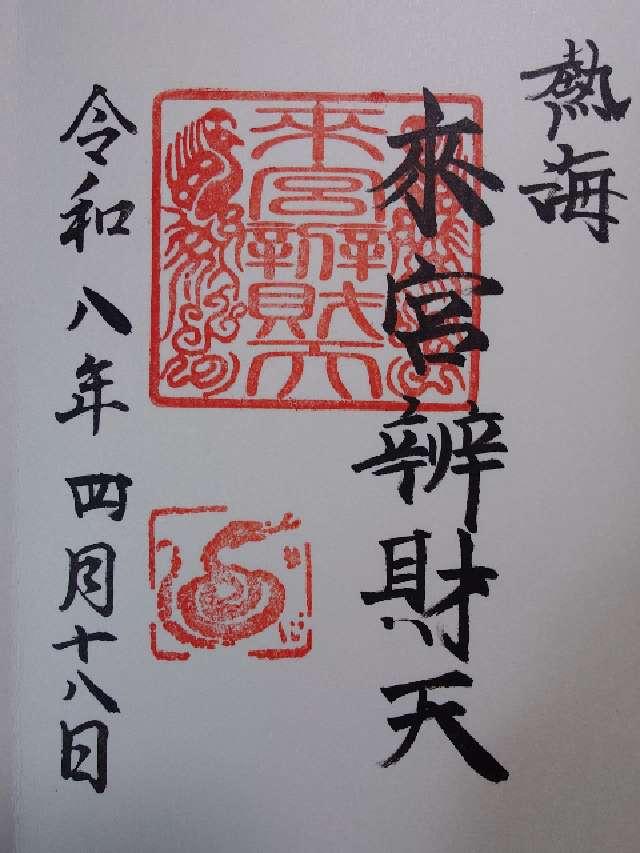 熱海
來宮辨財天
來宮辨財天
令和八年四月十八日